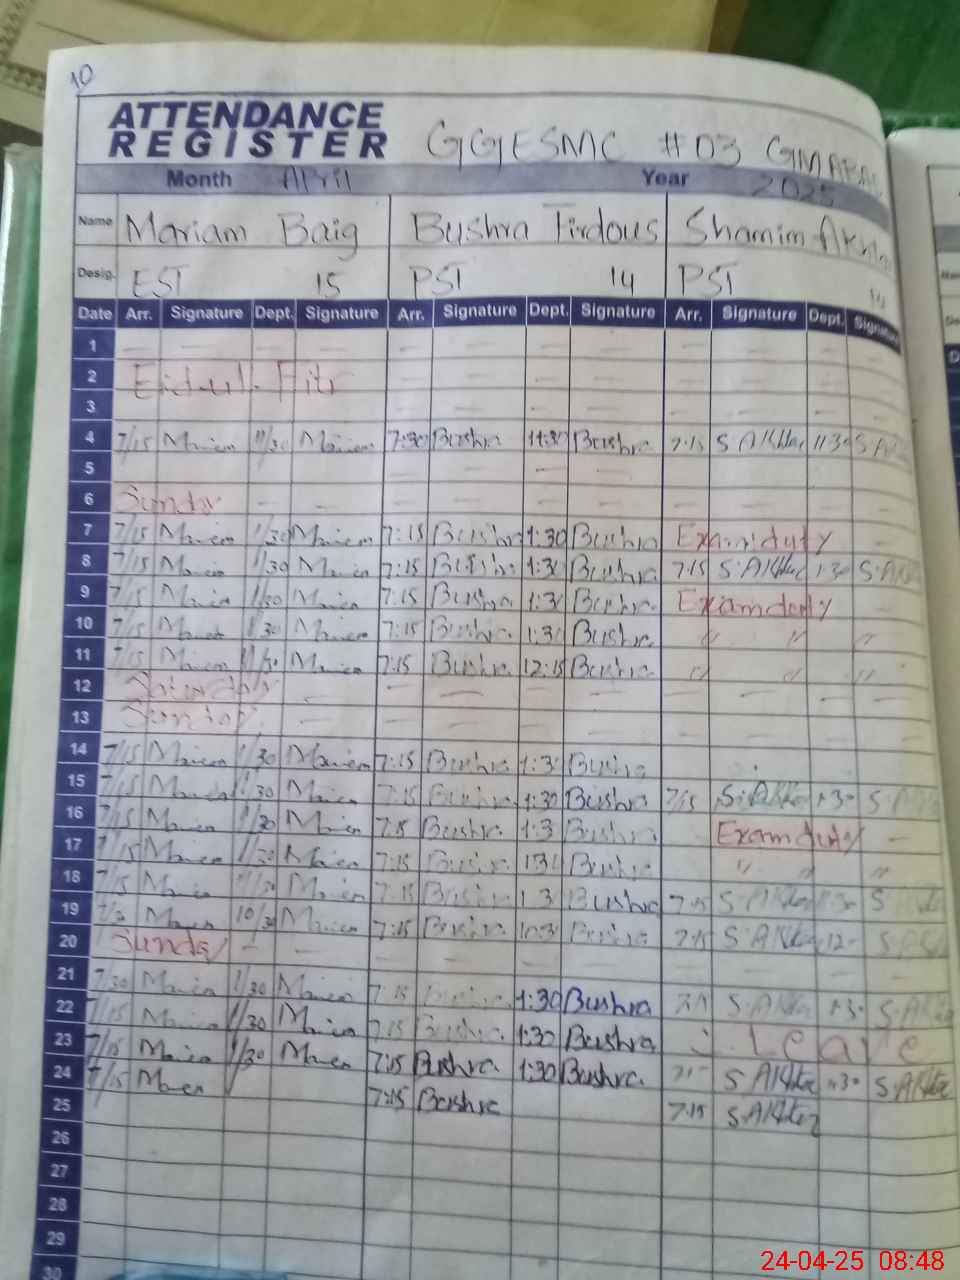 10
ATTENDANCE
REGISTER GGESMC #03 GMABAD
Month April Year 2025
Name Mariam Baig Bushra Firdous Shamim Akhtar
Desig. EST 15 PST 14 PST 14
Date Arr. Signature Dept. Signature Arr. Signature Dept. Signature Arr. Signature Dept. Signature
1 — — — — — — — — — — — —
2 Eid-ul-Fitr — — — — — — — —
3 — — — — — — — —
4 7/15 Mariam 11/30 Mariam 7:30 Bushra 11:30 Bushra 7:15 S Akhtar 11:30 S Akh
5 — — — — — — — —
6 Sunday — — — — — — — — — —
7 7/15 Mariam 1/30 Mariam 7:15 Bushra 1:30 Bushra Exam duty —
8 7/15 Mariam 1/30 Mariam 7:15 Bushra 1:30 Bushra 7:15 S.Akhtar 1:30 S.Akh
9 7/15 Mariam 1/30 Mariam 7:15 Bushra 1:30 Bushra Exam duty —
10 7/15 Mariam 1/30 Mariam 7:15 Bushra 1:30 Bushra " " "
11 7/15 Mariam Mariam 7:15 Bushra 12:15 Bushra " " "
12 Saturday — — — — — — — — —
13 Sunday — — — — — — — — — —
14 7/15 Mariam 1/30 Mariam 7:15 Bushra 1:3 Bushra
15 7/15 Mariam 1/30 Mariam 7:15 Bushra 1:30 Bushra 7/15 S.Akhtar 1:30 S
16 7/15 Mariam 1/30 Mariam 7:15 Bushra 1:3 Bushra Exam duty —
17 7/15 Mariam 1/30 Mariam 7:15 Bushra 1:30 Bushra " " "
18 7/15 Mariam Mariam 7:15 Bushra 1:3 Bushra 7:15 S.Akhtar S
19 Mariam 10/30 Mariam 7:15 Bushra 10:3 Bushra 7:15 S.Akhtar 12 S
20 Sunday — — — — — — — — — —
21 7/30 Mariam 1/30 Mariam 7:15 Bushra 1:30 Bushra S.Akhtar 1:30 S.Akh
22 7/15 Mariam 1/30 Mariam 7:15 Bushra 1:30 Bushra Leave
23 7/15 Mariam 1/30 Mariam 7:15 Bushra 1:30 Bushra S Akhtar S.Akhtar
24 7/15 Mariam 7:15 Bushra 7:15 S.Akhtar
25
26
27
28
29
30
24-04-25 08:48